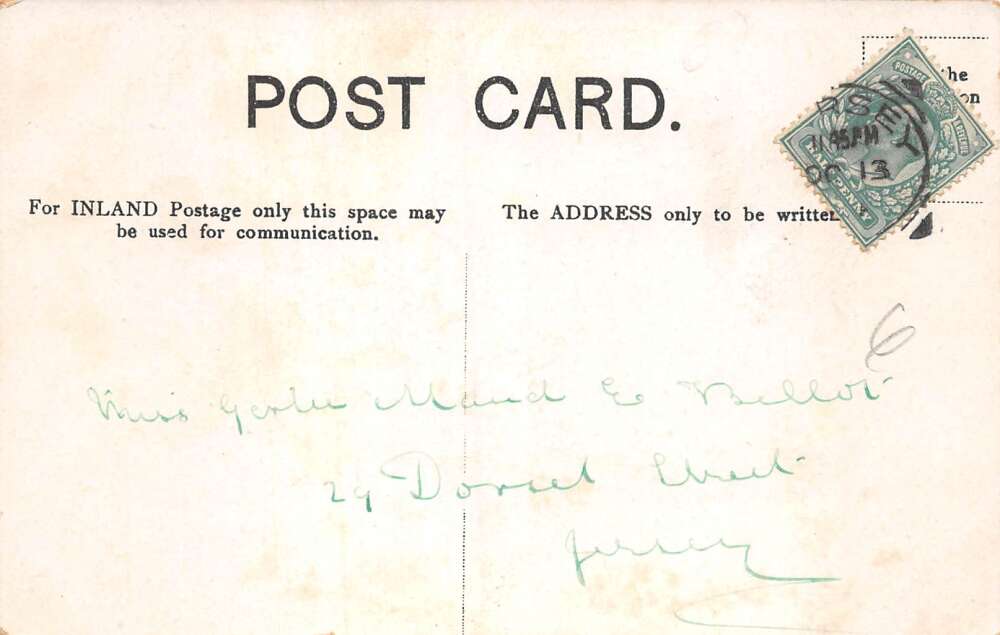 POST CARD.
he
on
For INLAND Postage only this space may
be used for communication.
The ADDRESS only to be writte
POSTAGE
REVENUE
HALFPENNY
RSEY
11 45 PM
OC 13
6
Miss Gertie Maud E Bellot
29 Dorset Street
Jersey